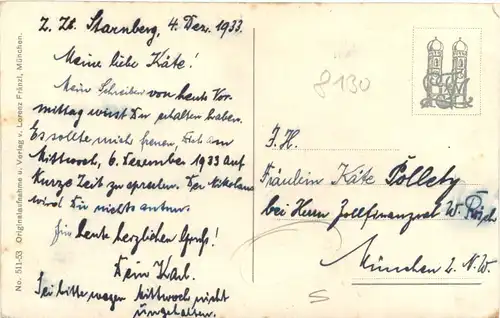 Z. Zt. Starnberg, 4. Dez. 1933.
Meine liebe Käte!
Mein Schreiben von heute Vor-
mittag wirst Du erhalten haben.
Es sollte mich freuen, Dich am
Mittwoch, 6. Dezember 1933 auf
kurze Zeit zu sprechen. Der Nikolaus
wird Dir nichts antun.
Für heute herzlichen Gruß!
Dein Karl.
Sei bitte wegen Mittwoch nicht
ungehalten.
No. 511-53 Originalaufnahme u. Verlag v. Lorenz Fränzl, München.
8130
F. H.
Fräulein Käte Pollety
bei Herrn Zollfinanzrat W.
München 2. N. W.
5